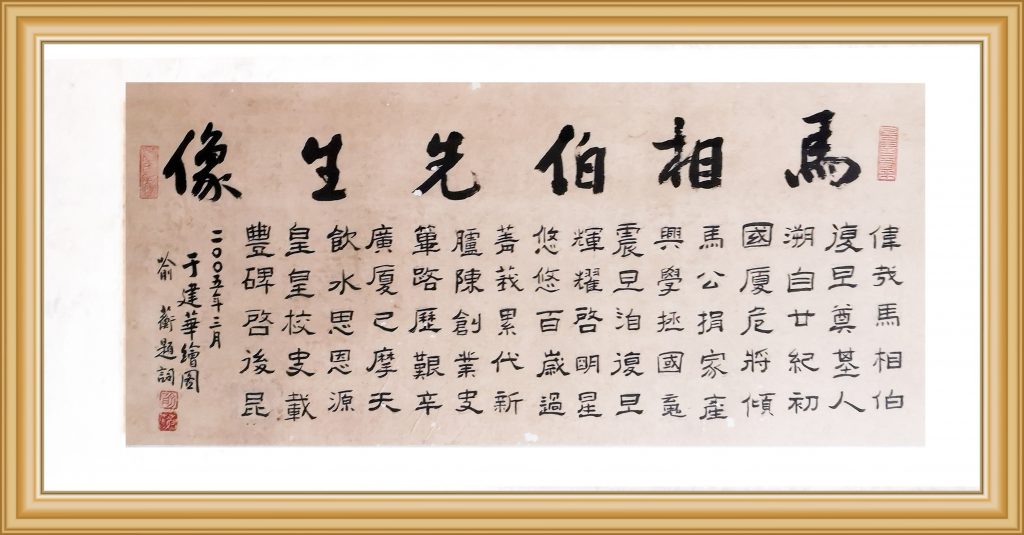 馬相伯先生像
偉哉馬相伯
復旦奠基人
溯自廿紀初
國廈危將傾
馬公捐家產
興學拯國運
震旦洎復旦
輝耀啓明星
悠悠百歲過
菁莪累代新
臚陳創業史
篳路歷艱辛
廣厦已摩天
飲水思恩源
皇皇校史載
豐碑啓後昆
二〇〇五年三月
于建華繪圖
喻蘅題詞